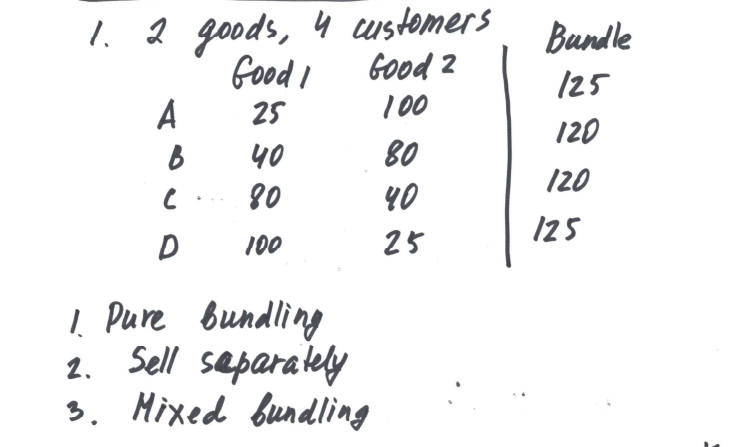 1. 2 goods, 4 customers Bundle
Good 1 Good 2
A 25 100 125
B 40 80 120
C 80 40 120
D 100 25 125
1. Pure bundling
2. Sell separately
3. Mixed bundling